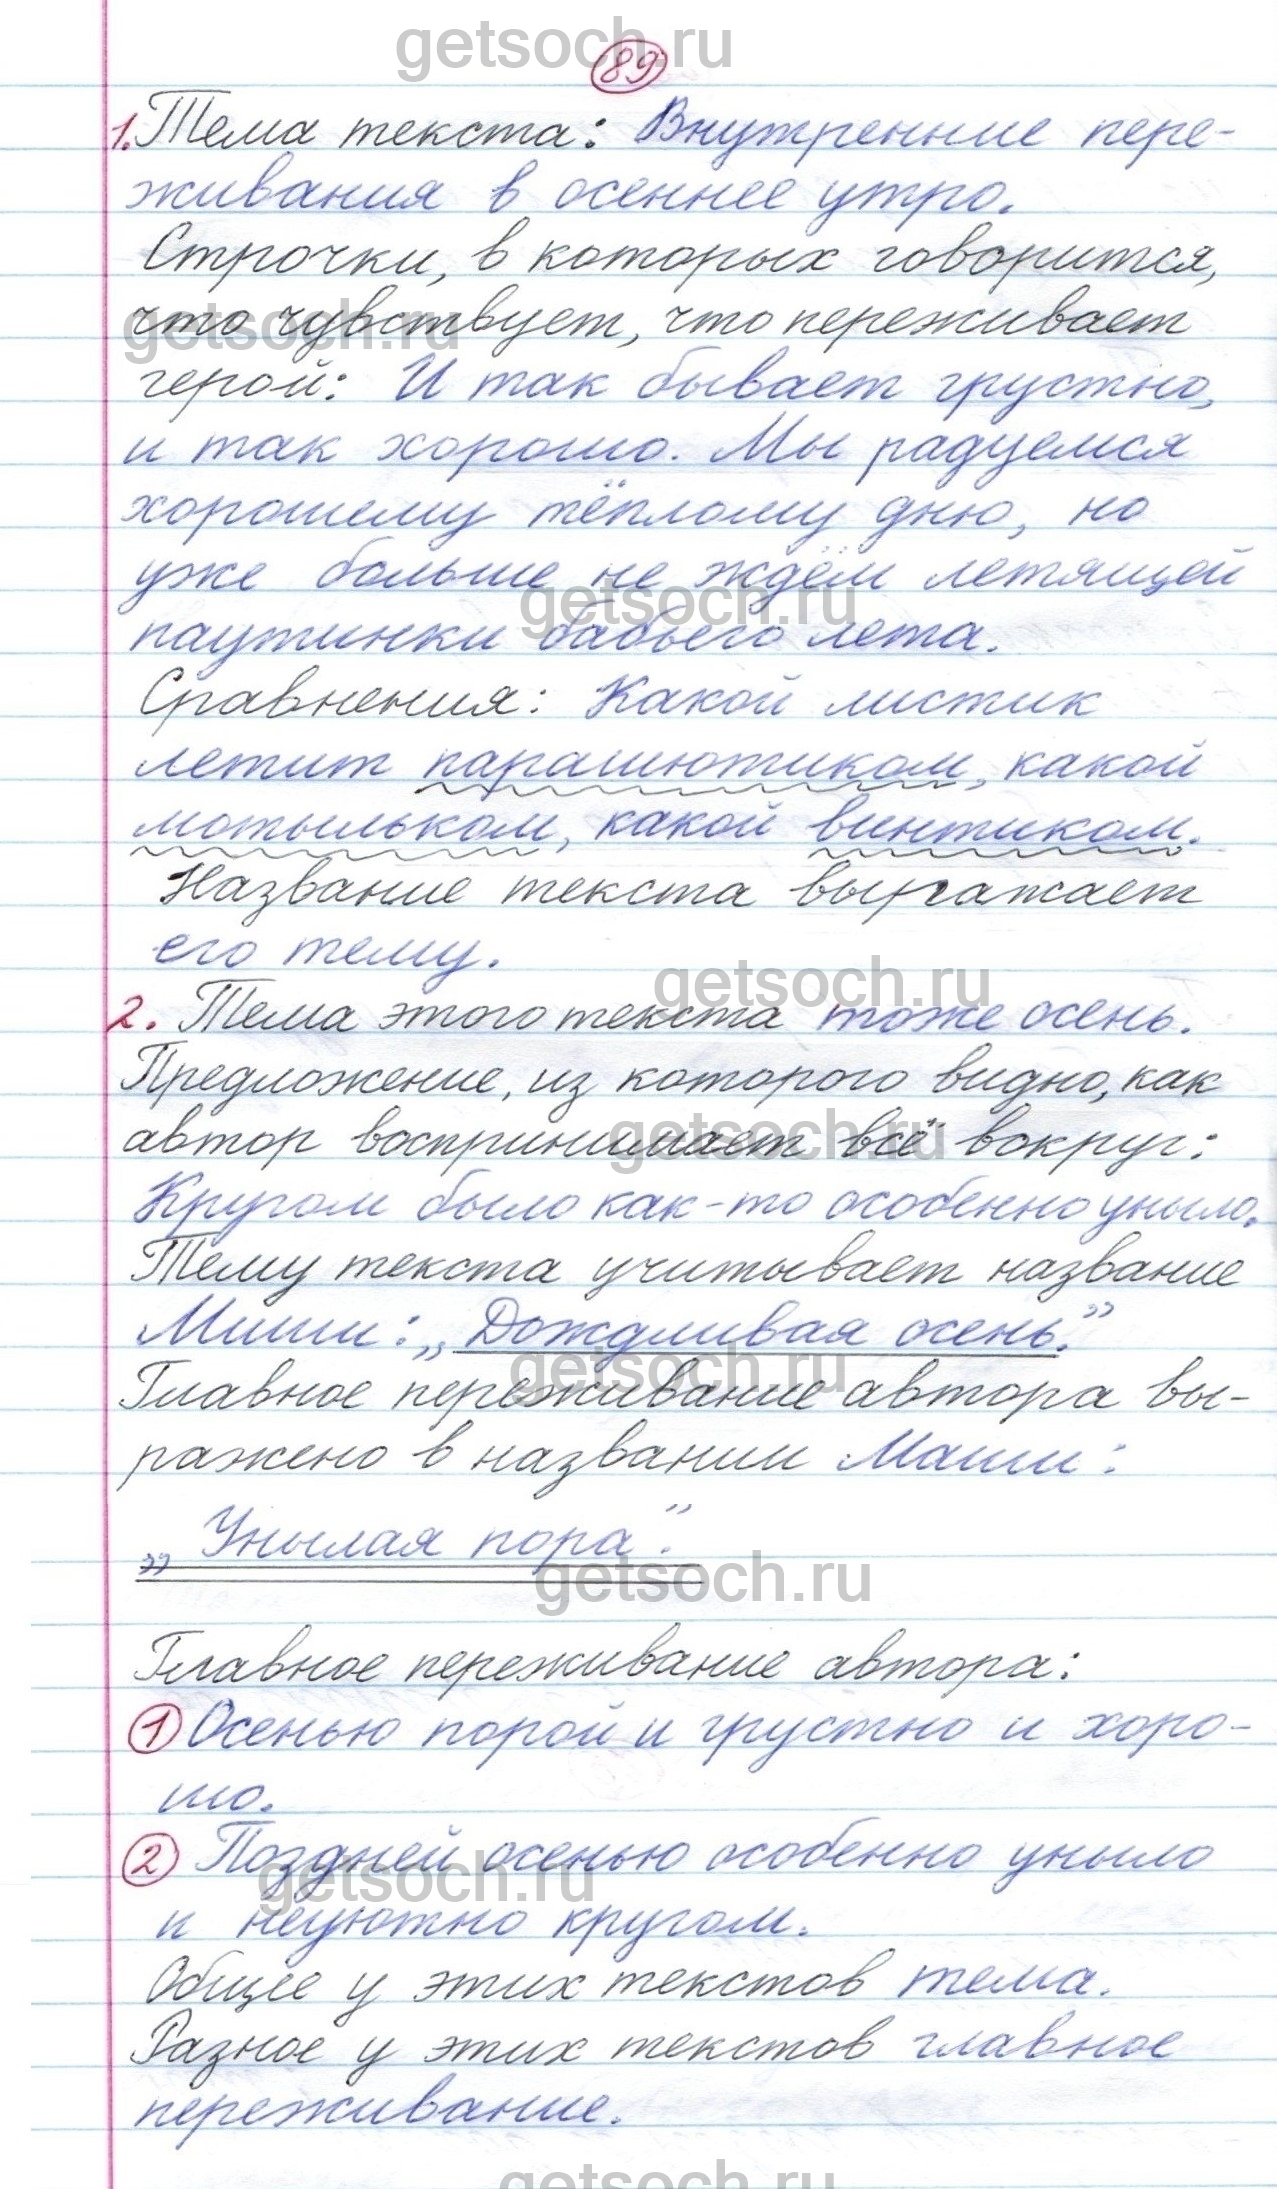 getsoch.ru
89
1. Тема текста: Внутренние пере-
живания в осеннее утро.
Строчки, в которых говорится,
getsoch.ru
что чувствует, что переживает
герой: И так бывает грустно,
и так хорошо. Мы радуемся
хорошему тёплому дню, но
уже больше не ждём летящей
getsoch.ru
паутинки бабьего лета.
Сравнения: Какой листик
летит парашютиком, какой
мотыльком, какой винтиком.
Название текста выражает
его тему.
getsoch.ru
2. Тема этого текста тоже осень.
Предложение, из которого видно, как
автор воспринимает всё вокруг:
getsoch.ru
Кругом было как-то особенно уныло.
Тему текста учитывает название
Миши: „Дождливая осень."
getsoch.ru
Главное переживание автора вы-
ражено в названии Маши:
„Унылая пора".
getsoch.ru
Главное переживание автора:
1 Осенью порой и грустно и хоро-
шо.
2 Поздней осенью особенно уныло
getsoch.ru
и неуютно кругом.
Общее у этих текстов тема.
Разное у этих текстов главное
переживание.
getsoch.ru